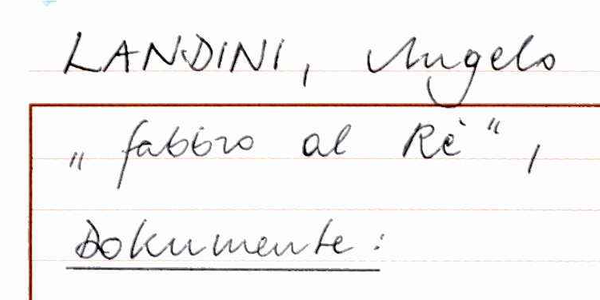 LANDINI, Angelo
„fabbro al Rè“,
Dokumente: